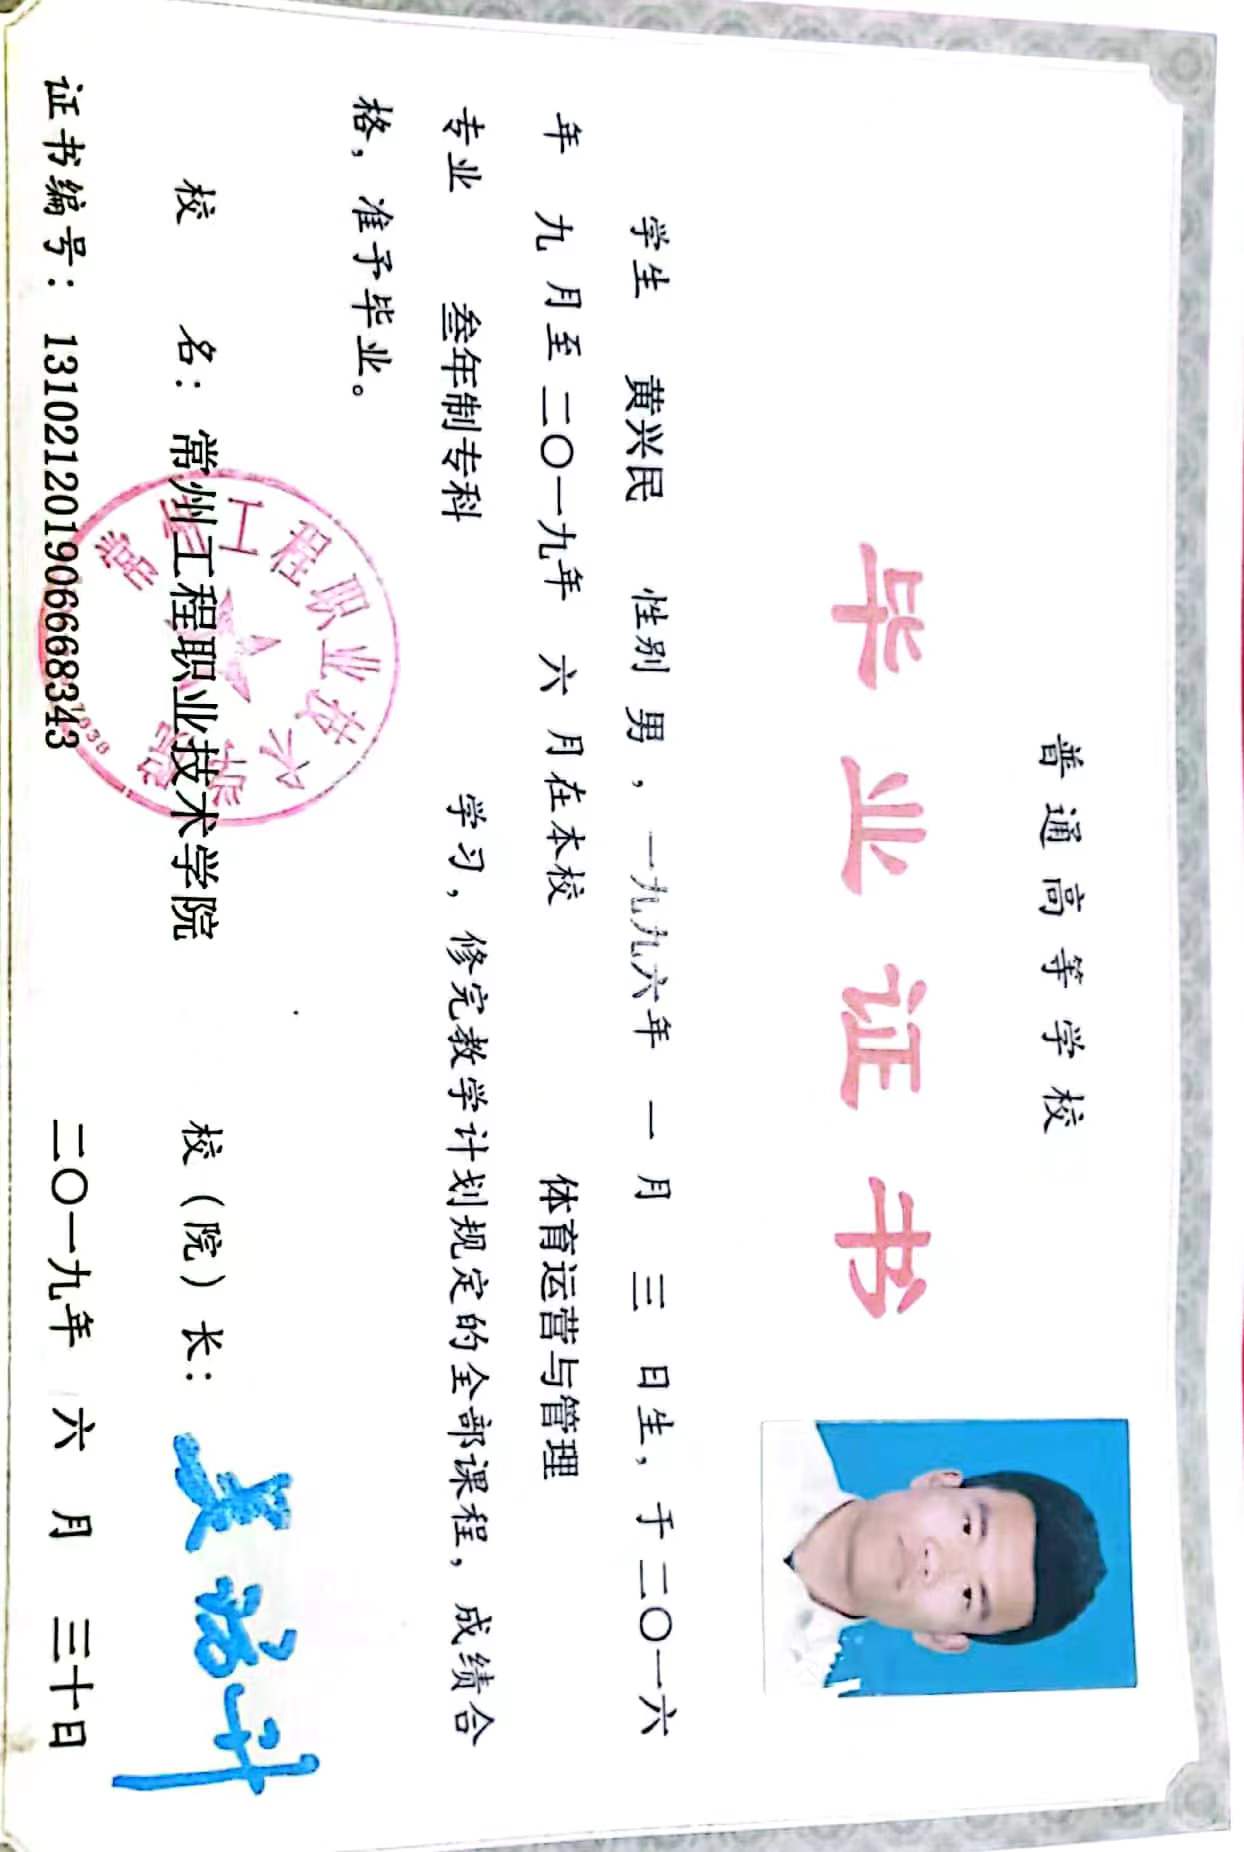 普通高等学校
毕业证书
学生 黄兴民 性别 男，一九九六年 一 月 三 日生，于二〇一六
年 九 月至二〇一九年 六 月在本校 体育运营与管理
专业 叁年制专科 学习，修完教学计划规定的全部课程，成绩合
格，准予毕业。
校 名：常州工程职业技术学院 校（院）长：
证书编号：131021201906668343 二〇一九年 六 月 三十日